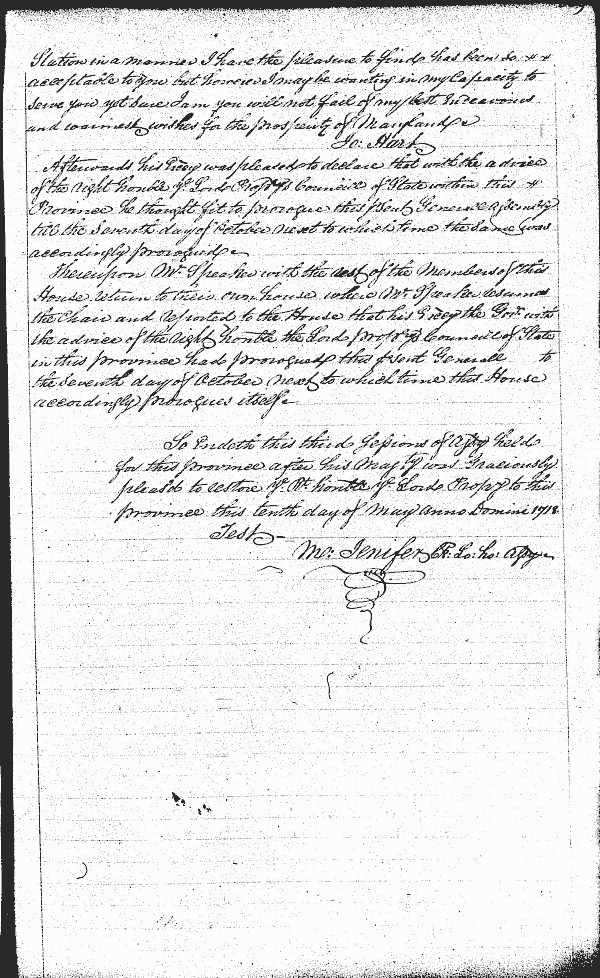 Station in a manner I have the pleasure to find has been so
acceptable to you but however I may be wanting in my Capacity to
serve you yet sure I am you will not fail of my best Endeavours
and warmest wishes for the prosperity of Maryland
Jo: Hart
Afterwards his Excy was pleased to declare that with the advice
of the right honble ye Lord Propryts Councill of State within this
Province he thought fit to prorogue this psent Generall Assembly
till the Seventh day of October next to which time the same was
accordingly prorogued
Thereupon Mr. Speaker with the rest of the Members of this
House return to their own house where Mr. Speaker resumes
the Chair and reported to the House that his Excy the Govr. with
the advice of the right honble the Lord propryts Councill of State
in this province had prorogued this psent Generall to
the Seventh day of October next to which time this House
accordingly prorogues itself
So Endeth this third Sessions of Assy held
for this province after his Majty was Graciously
pleas'd to restore ye Rt. honble ye Lord Propry to this
province this tenth day of May Anno Domini 1718.
Test
Mo: Jenifer Cl: Lo: ho: Assy